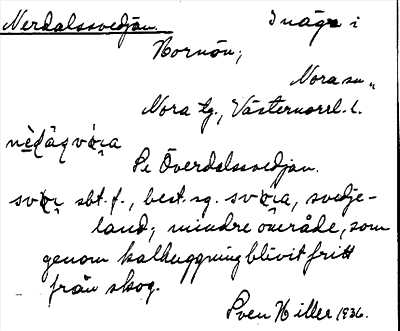 Nerdalssvedjan. Inäga i
Hornön;
Nora sn.,
Nora tg., Västernorrl. l.
Se Överdalssvedjan.
sbt. f., best. sg. svedje-
land; mindre område, som
genom kalhuggning blivit fritt
från skog.
Sven Hiller 1936.